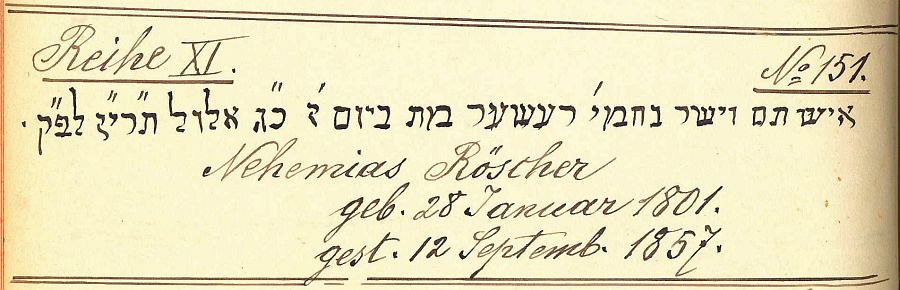 Reihe XI.
No 151.
איש תם וישר נחמי' רעשער מת ביום ז' כ"ג אלול תרי"ז לפ"ק.
Nehemias Röscher
geb. 28 Januar 1801.
gest. 12 Septemb. 1857.